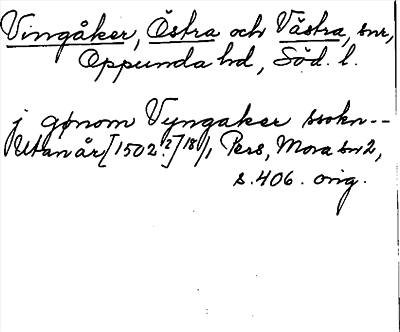 Vingåker, Östra och Västra, snr,
Oppunda hd, Söd. l.
j gønom Vyngaker sokn--
Utan år [1502?] 18/1 Pers, Mora sn 2,
s. 406. orig.